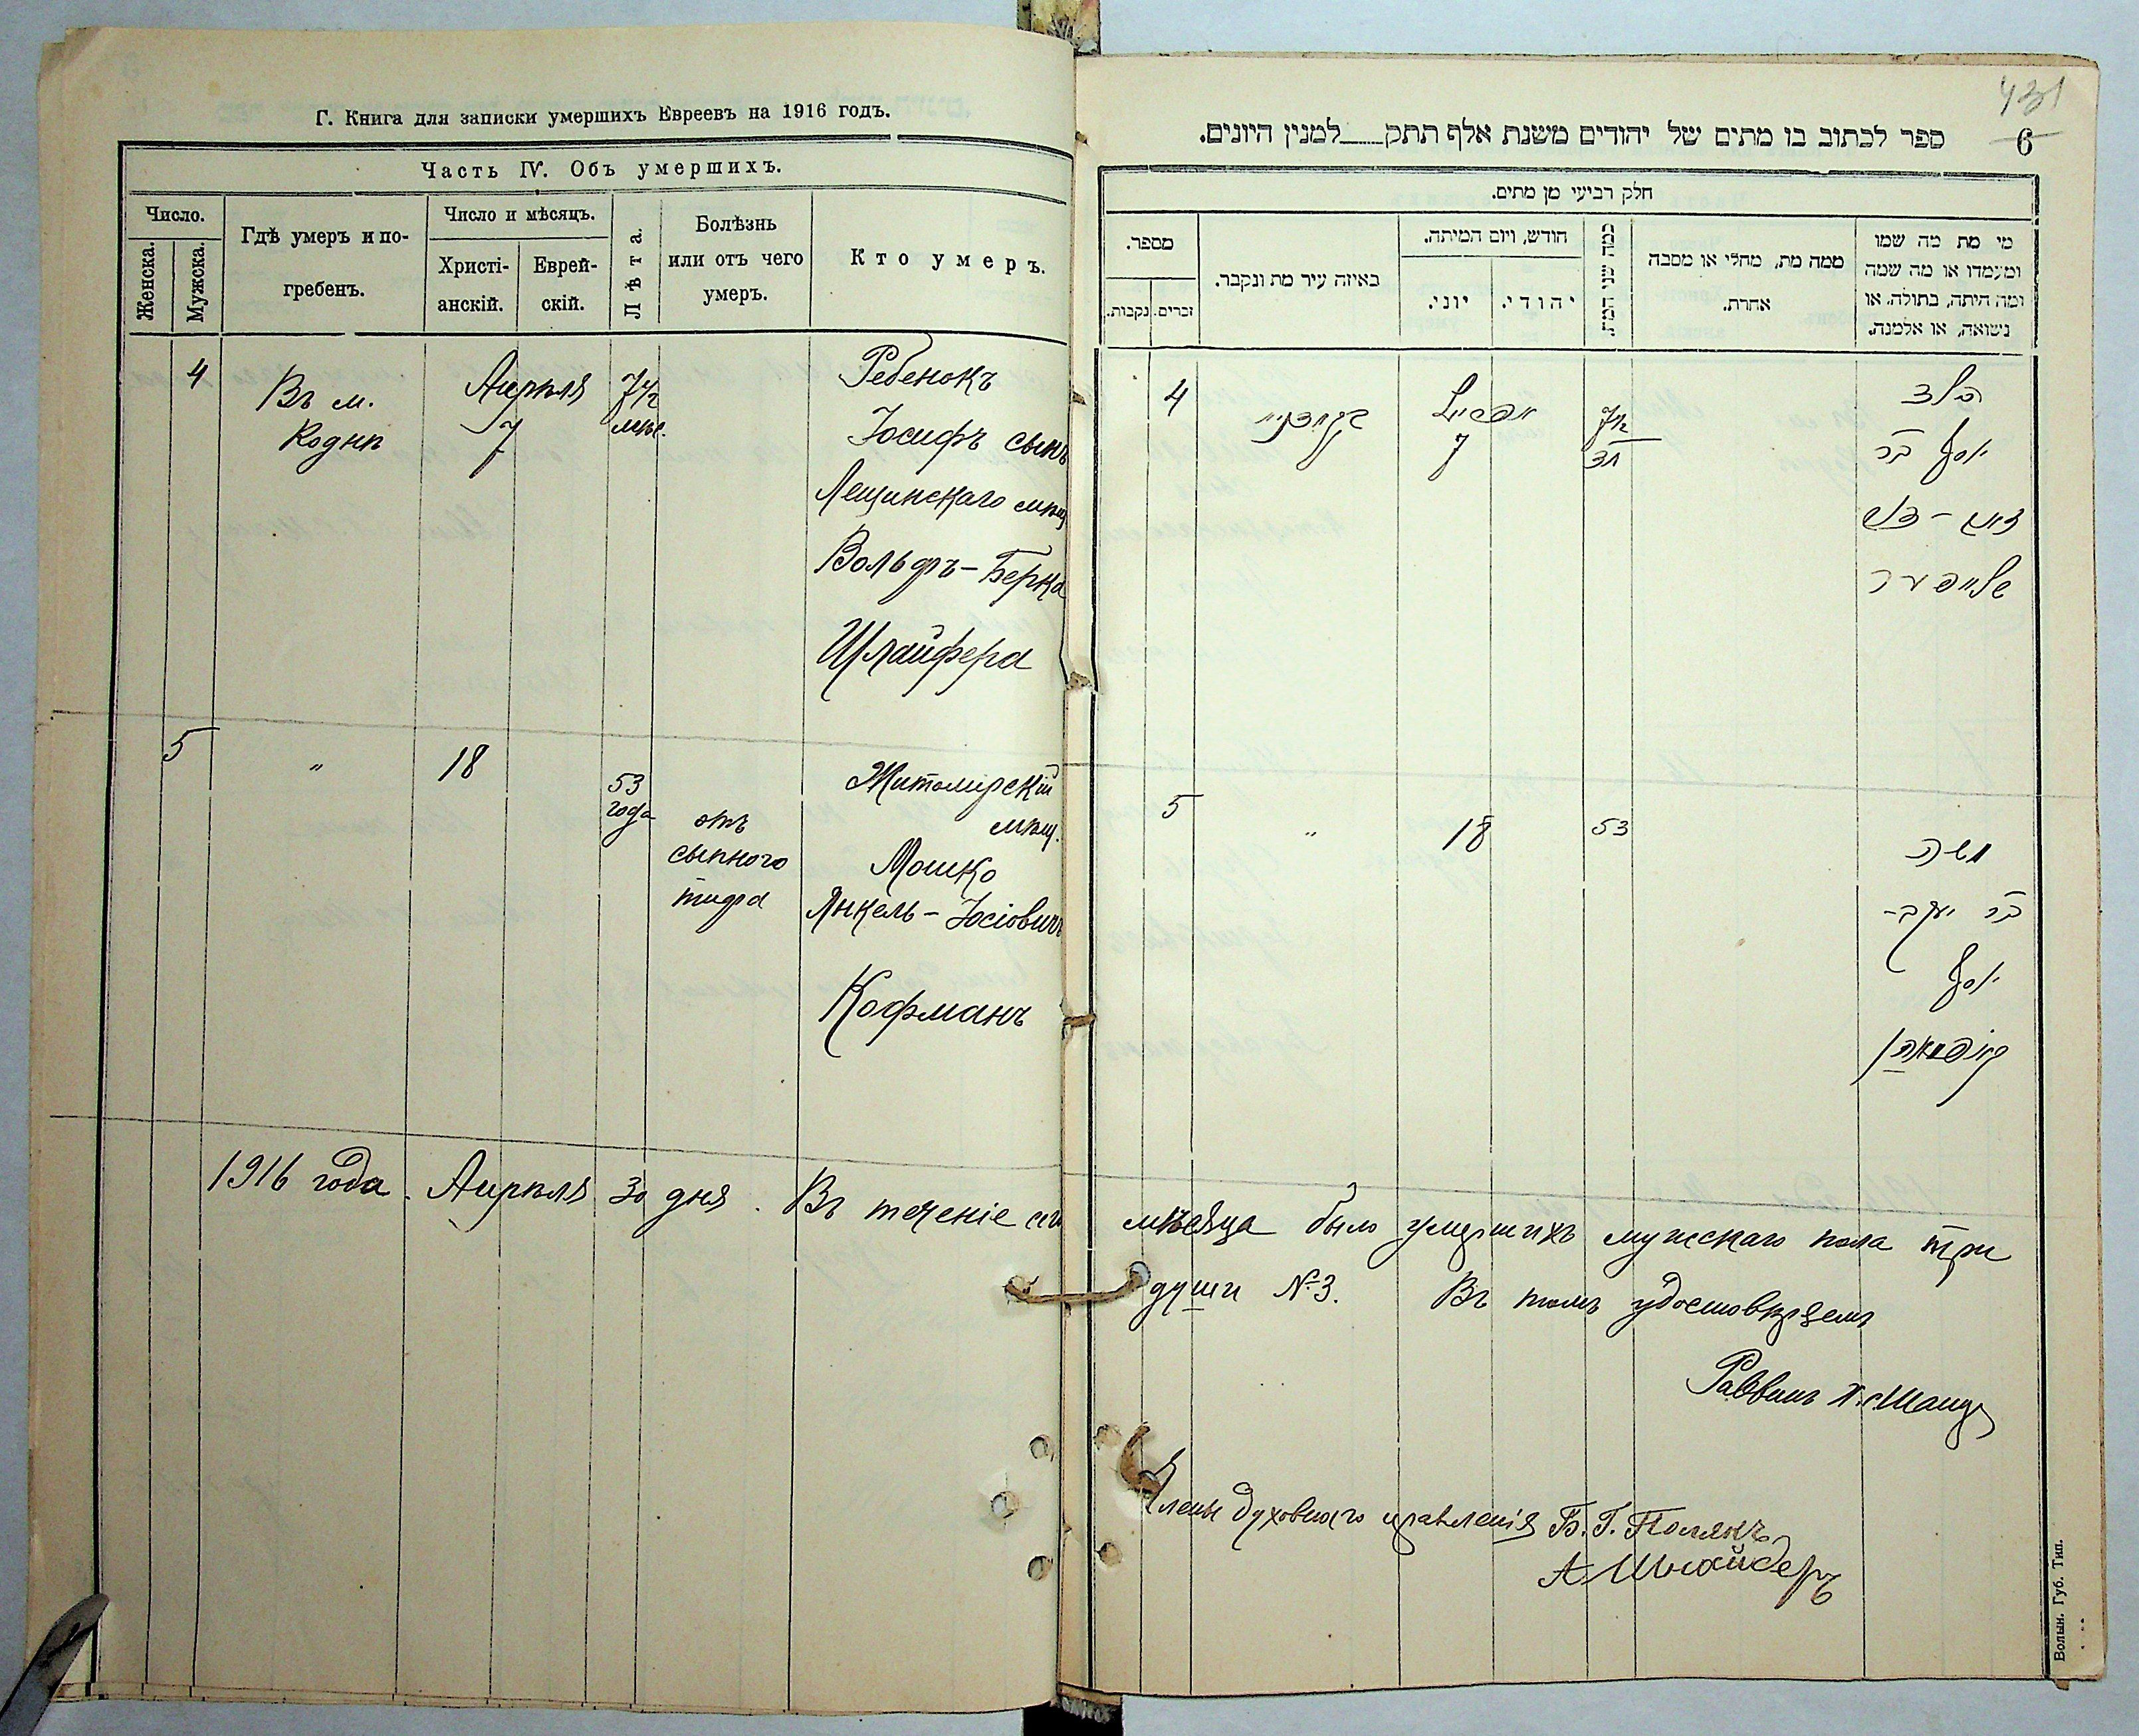 Г. Книга для записки умершихъ Евреевъ на 1916 годъ.
Часть IV. Объ умершихъ.
Число.
Женска.
Мужска.
Гдѣ умеръ и по-
гребенъ.
Число и мѣсяцъ.
Христі-
анскій.
Еврей-
скій.
Лѣта.
Болѣзнь
или отъ чего
умеръ.
Кто умеръ.
4
Въ м.
Кодни
Апрѣля
7
7 1/2
мѣс.
Ребенокъ
Іосифъ сынъ
Лещинскаго мѣщ
Вольфъ-Берка
Шлайфера
5
"
18
53
года
отъ
сыпного
тифа
Житомірскій
мѣщ.
Мошко
Янкель-Іосіовичъ
Кофманъ
1916 года. Апрѣля 30 дня. Въ теченіе сего
431
6
ספר לכתוב בו מתים של יהודים משנת אלף תתק___למנין היונים.
חלק רביעי מן מתים.
מספר.
נקבות.
זכרים.
באיזה עיר מת ונקבר.
חודש, ויום המיתה.
יוני.
יהודי.
כמה שני המת
ממה מת, מחלי או מסבה
אחרת.
מי מת מה שמו
ומעמדו או מה שמה
ומה היתה, בתולה, או
נשואה, או אלמנה.
4
אפריל
7
7 1/2
חד
הילד
יוסף בר
זאב-בער
שלייפער
5
"
18
53
משה
בר יעקב-
יוסף
קויפמאן
мѣсяца было умершихъ мужскаго пола три
души №3. Въ томъ удостовѣряемъ
Раввинъ
Члены духовнаго правленія Б. Г. Полякъ
А. Шнайдеръ
Волын. Губ. Тип.